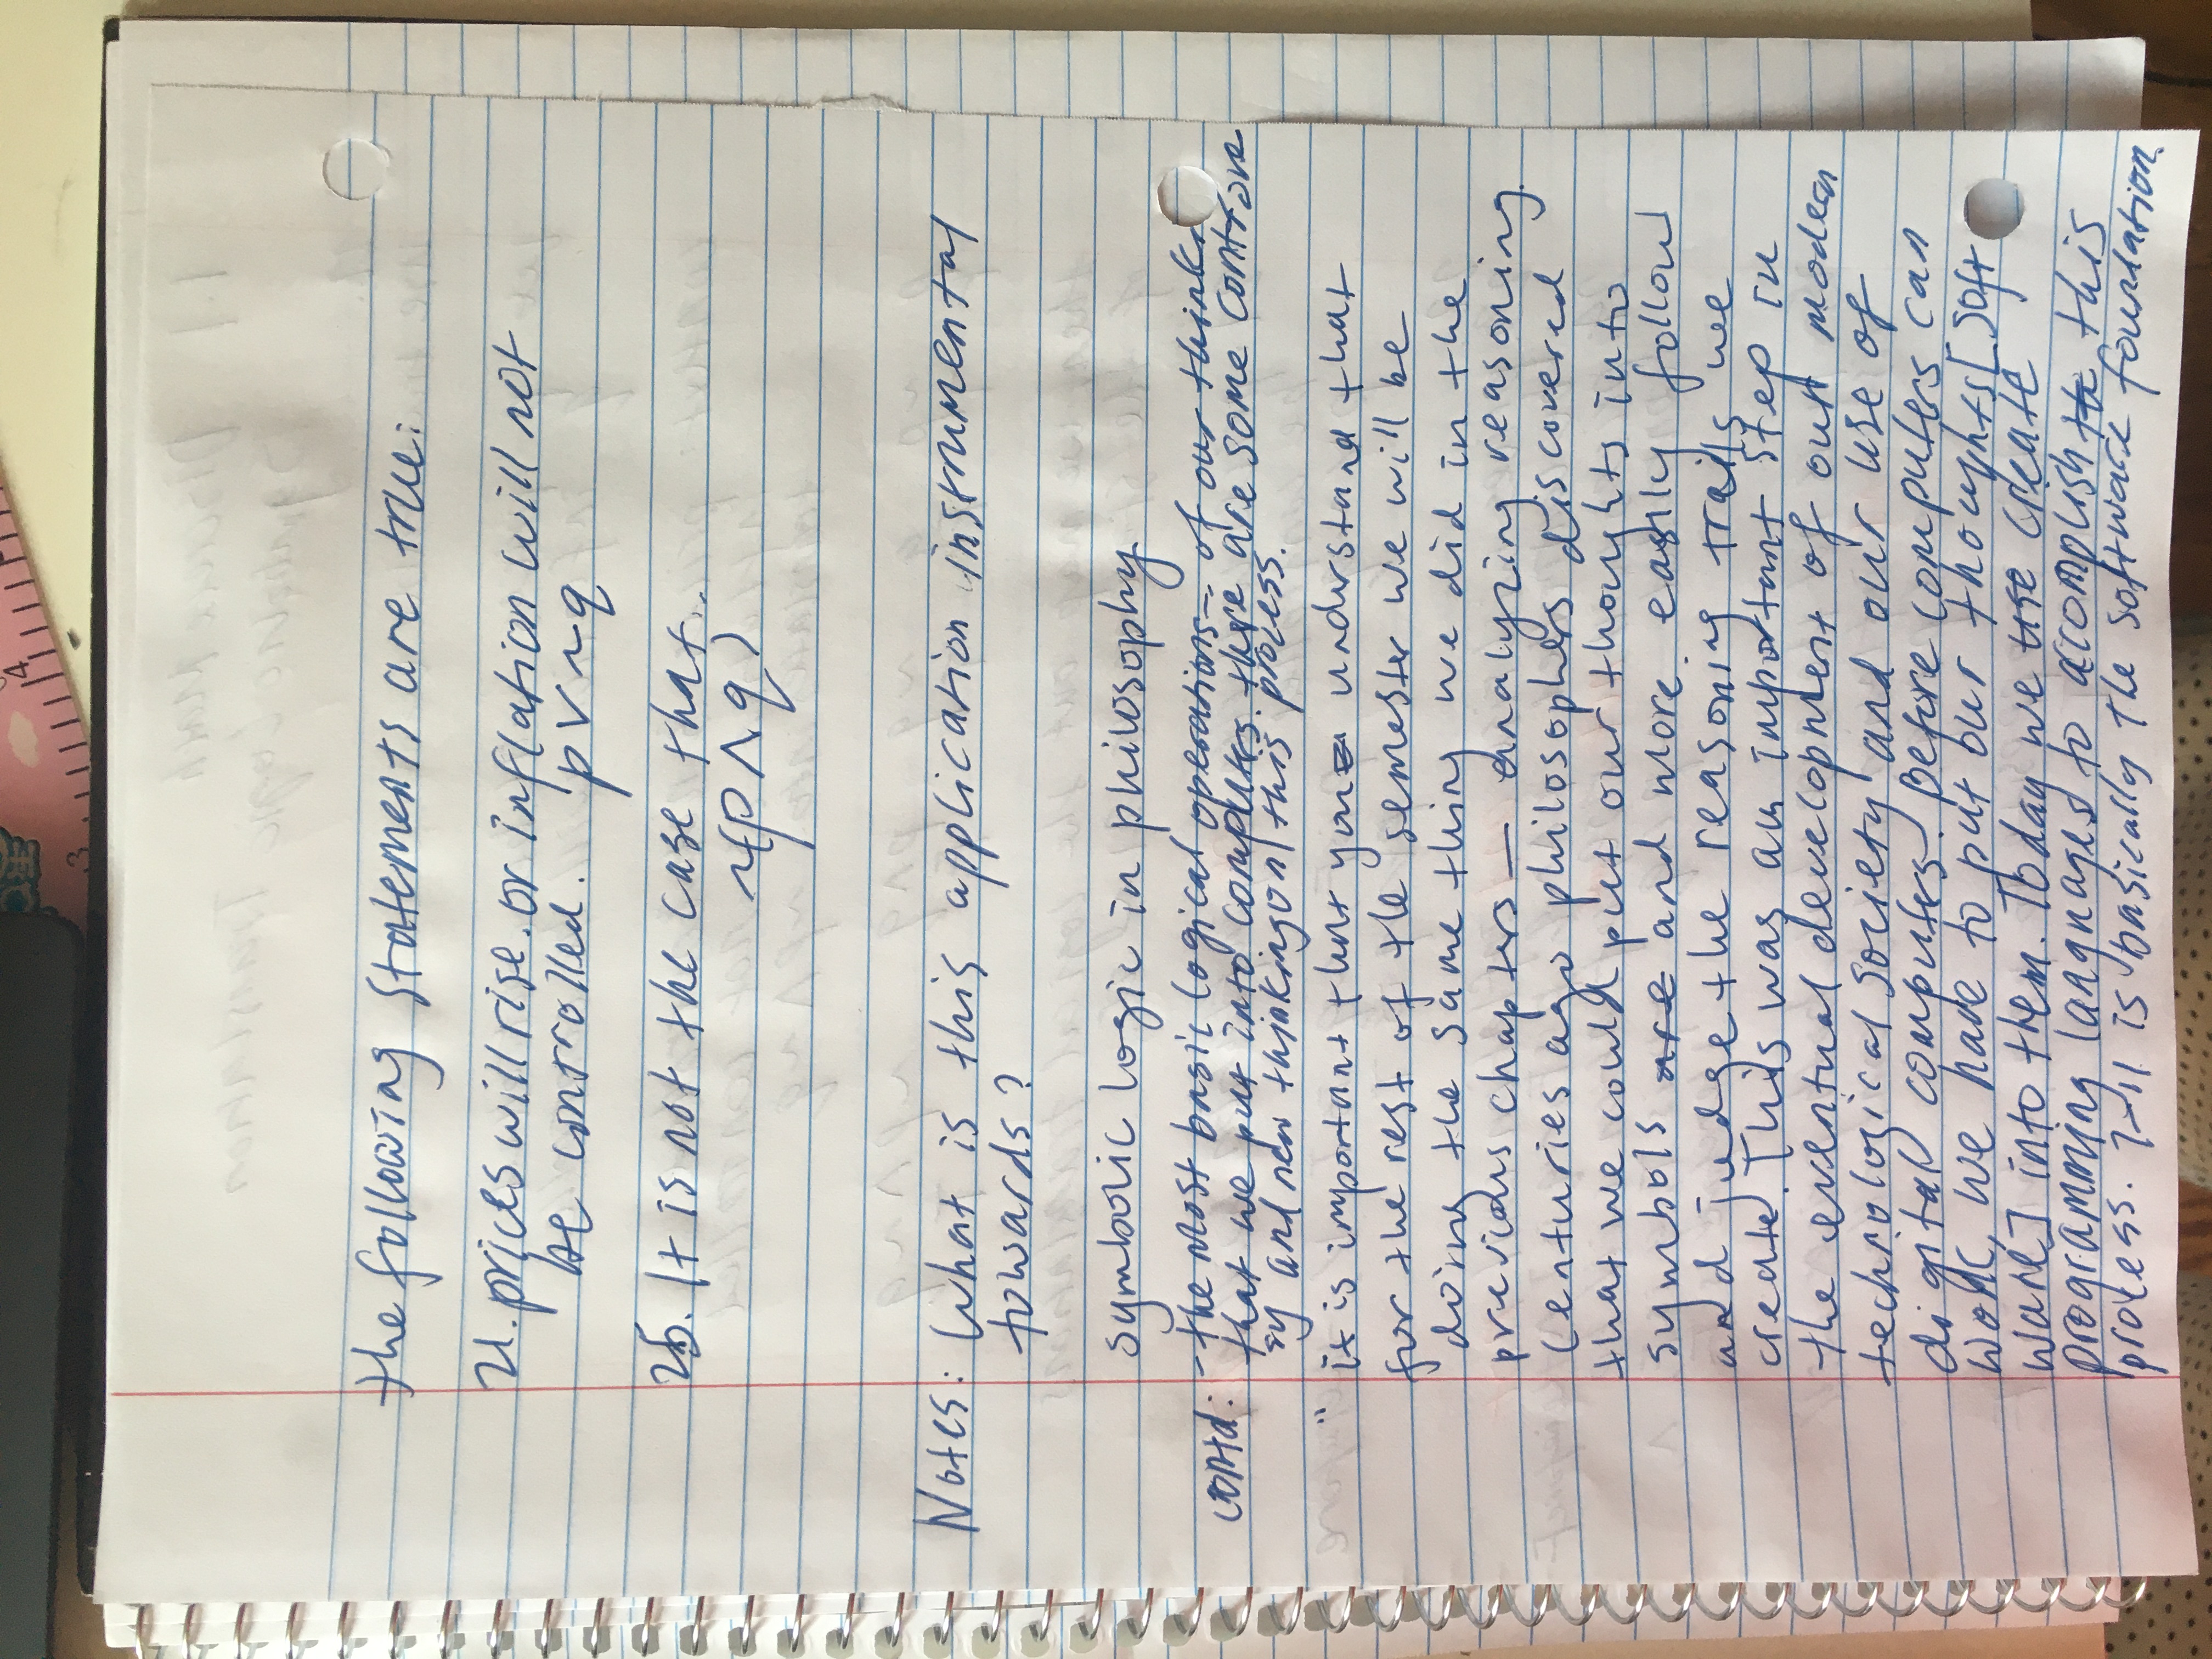 4
3
1.1 Discrete Math
Symbolic Logic Translation
the following statements are true:
21. prices will rise. or inflation will not
be controlled. p ∨ ~q
25. It is not the case that..
~(p ∧ q)
Notes: What is this application instrumental
towards?
symbolic logic in philosophy
- the most basic logical operations - of our thinki
contd: that we put into computers. there are some controve
sy and new thinking on this process.
" it is important that you understand that
for the rest of the semester we will be
doing the same thing we did in the
previous chapters — analyzing reasoning.
Centuries ago philosophers discovered
that we could put our thoughts into
symbols are and more easily follow
and judge the reasoning trails we
create. This was an important step in
the eventual development of our modern
technological society and our use of
digital computers. Before computers can
work, we have to put our thoughts [soft
ware] into them. Today we use create
programming languages to acomplish th this
process. 7-11 is basically the software foundation.